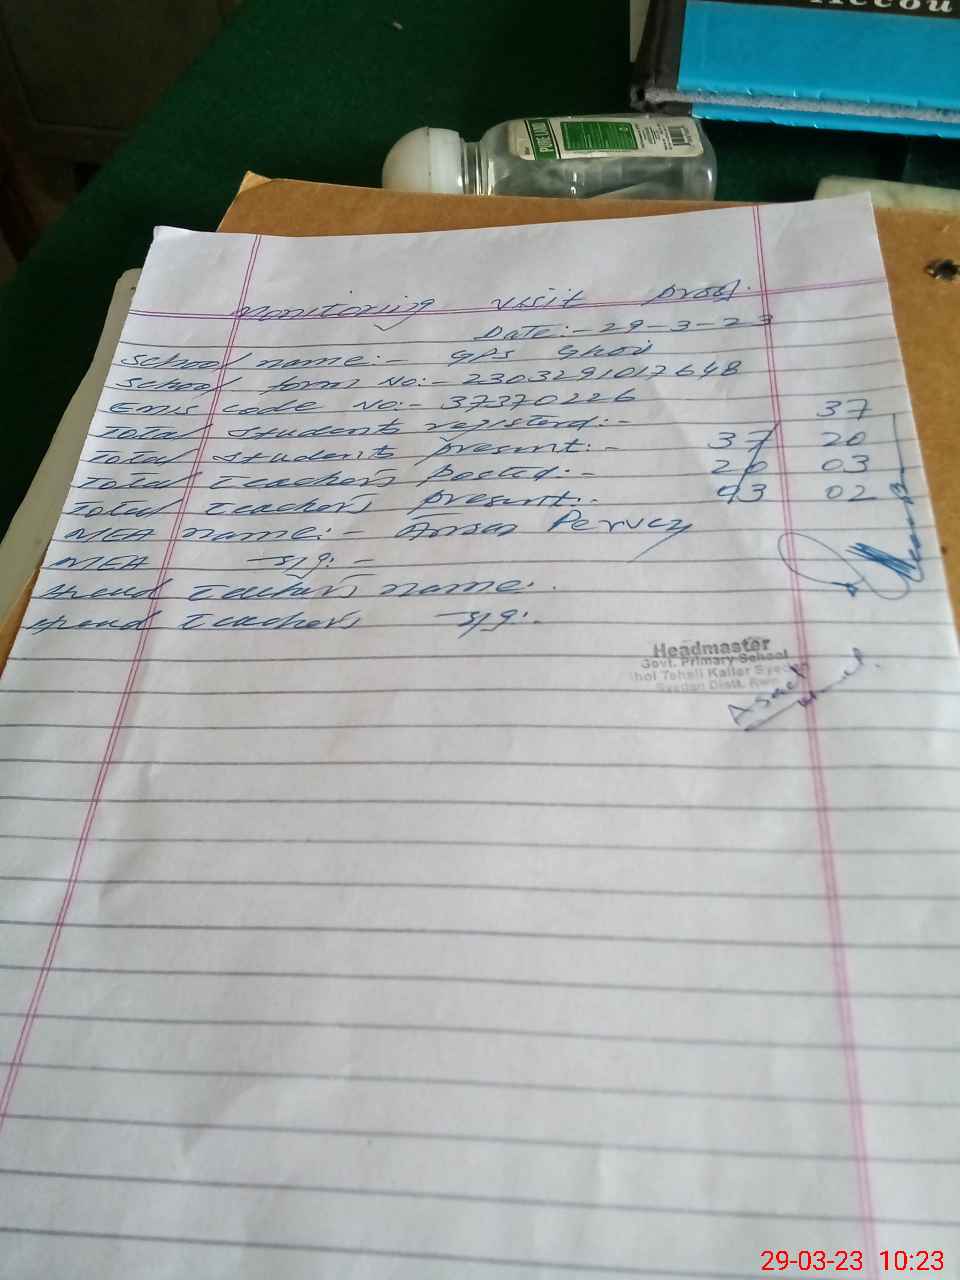 Accou
PURE AND
Monitoring visit proof.
Date:- 29-3-23
School name:- GPS Ghol
School form No:- 2303291012648
EMIS code No:- 37370226
Total Students registerd:- 37
Total Students present:- 37 20
Total Teachers posted:- 20 03
Total Teachers present:- 03 02
MEA name:- Ansar Pervez
MEA sig:-
Head Teacher's name:.
Head Teacher's sig:.
Headmaster
Govt. Primary School
hol Tehsil Kallar Syedan
Syedan Distt. Rwp
Asad
29-03-23 10:23